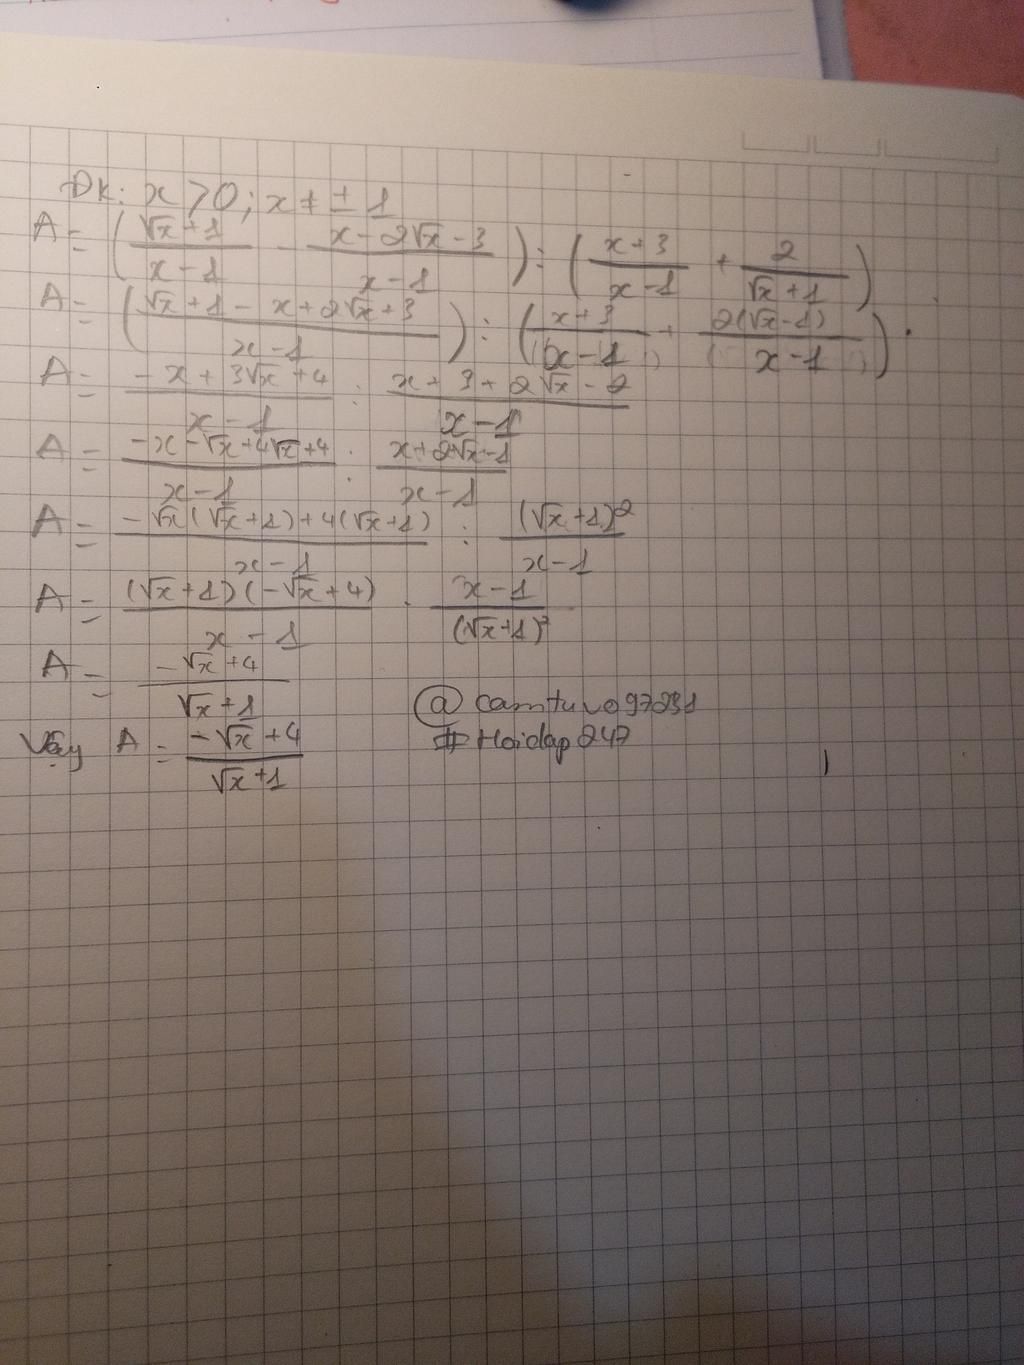 ĐK: x > 0; x ≠ ± 1
A = ( (√x + 1)/(x - 1) - (x - 2√x - 3)/(x - 1) ) : ( (x + 3)/(x - 1) + 2/(√x + 1) )
A = ( (√x + 1 - x + 2√x + 3)/(x - 1) ) : ( (x + 3)/(x - 1) + 2(√x - 1)/(x - 1) ).
A = (- x + 3√x + 4)/(x - 1) : (x + 3 + 2√x - 2)/(x - 1)
A = (-x - √x + 4√x + 4)/(x - 1) : (x + 2√x - 1)/(x - 1)
A = (-√x(√x + 1) + 4(√x + 1))/(x - 1) : (√x + 1)²/(x - 1)
A = (√x + 1)(-√x + 4)/(x - 1) . (x - 1)/(√x + 1)²
A = (-√x + 4)/(√x + 1)
@ camtuvo97231
Vậy A = (-√x + 4)/(√x + 1)
# Hoidap247